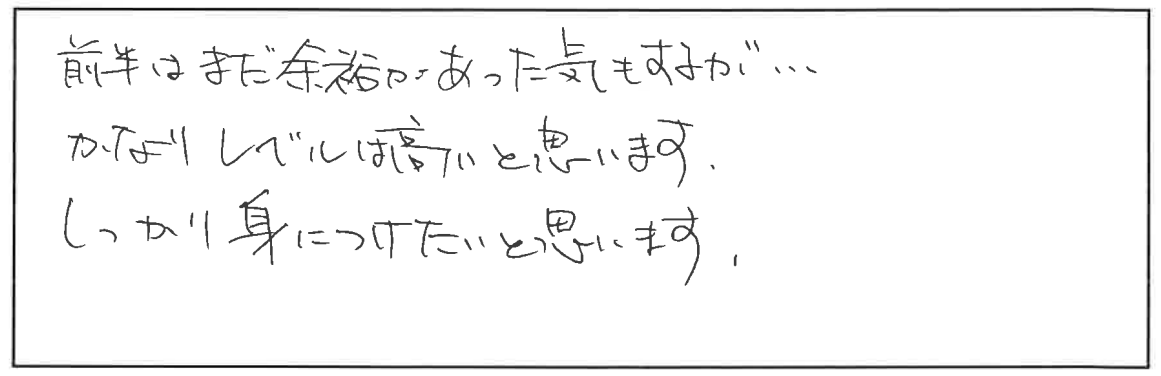 前半はまだ余裕があった気もするが…
かなりレベルは高いと思います.
しっかり身につけたいと思います.